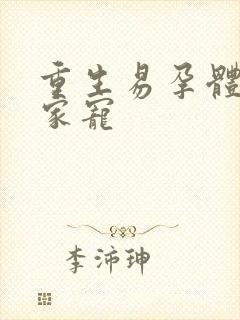 重生易孕體
家寵
李沛珅